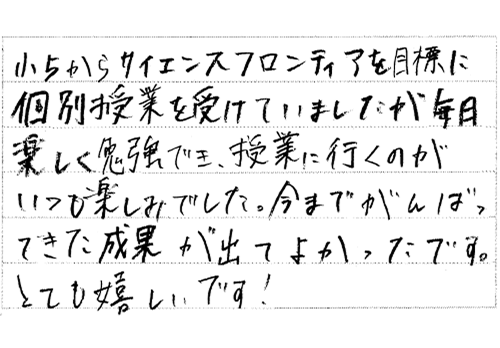 小5からサイエンスフロンティアを目標に
個別授業を受けていましたが毎日
楽しく勉強でき、授業に行くのが
いつも楽しみでした。今までがんばっ
てきた成果が出てよかったです。
とても嬉しいです!